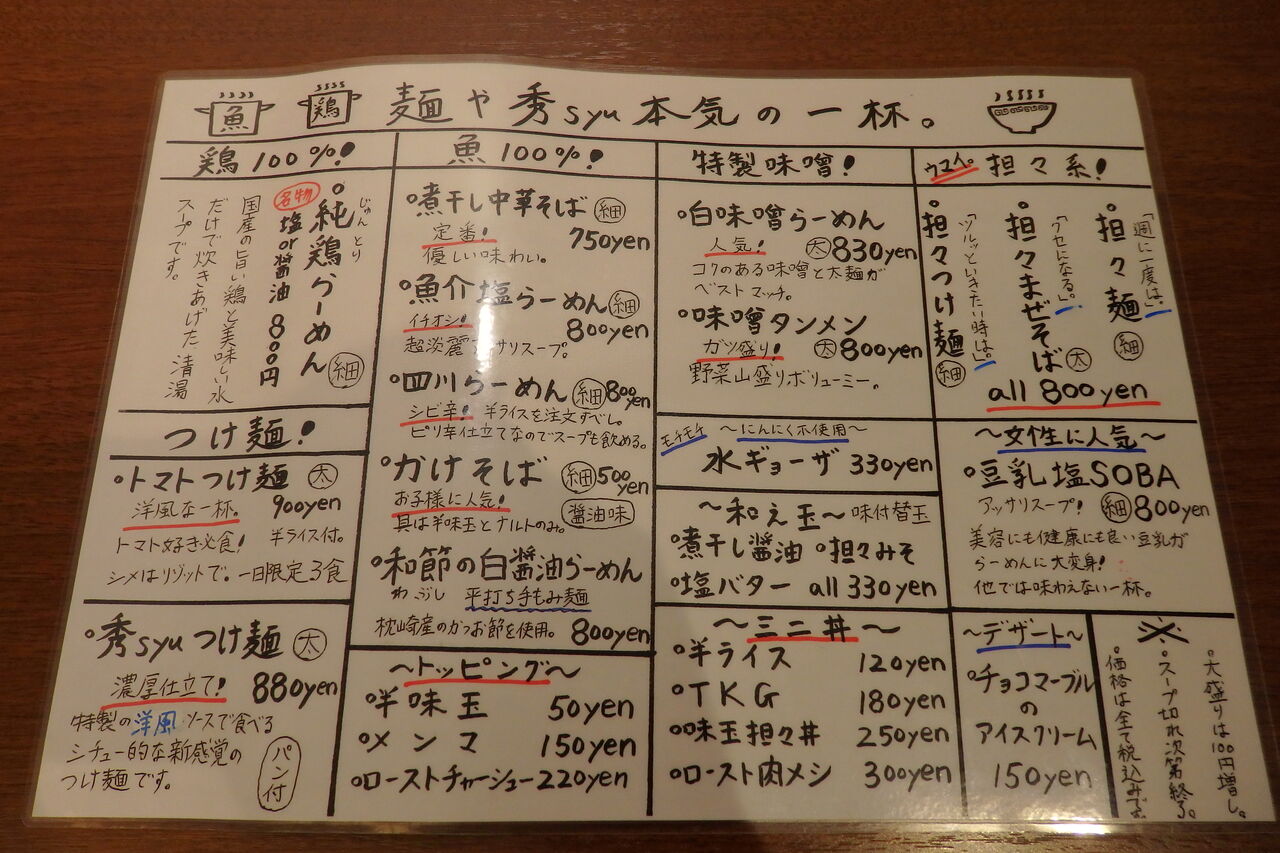 魚 鶏 麺や秀syu本気の一杯。
鶏100%!
じゅんとり
純鶏らーめん 細
名物 塩or醤油 800円
国産の旨い鶏と美味しい水
だけで炊きあげた清湯
スープです。
つけ麺!
トマトつけ麺 太
洋風な一杯。 900yen
トマト好き必食! 半ライス付。
シメはリゾットで。一日限定3食
秀syuつけ麺 太
濃厚仕立て! 880yen
特製の洋風ソースで食べる
シチュー的な新感覚の
つけ麺です。
パン付
魚100%!
煮干し中華そば 細
定番! 750yen
優しい味わい。
魚介塩らーめん 細
イチオシ! 800yen
超淡麗 サリスープ。
四川らーめん 細 800yen
シビ辛! 半ライスを注文すべし。
ピリ辛仕立てなのでスープも飲める。
かけそば 細 500yen
お子様に人気! 醤油味
具は半味玉とナルトのみ。
和節の白醤油らーめん
わぶし 平打ち手もみ麺
枕崎産のかつお節を使用。 800yen
〜トッピング〜
半味玉 50yen
メンマ 150yen
ローストチャーシュー 220yen
特製味噌!
白味噌らーめん
人気! 太 830yen
コクのある味噌と太麺が
ベストマッチ。
味噌タンメン
ガツ盛り! 太 800yen
野菜山盛りボリューミー。
モチモチ 〜にんにく不使用〜
水ギョーザ 330yen
〜和え玉〜 味付替玉
煮干し醤油 担々みそ
塩バター all 330yen
〜ミニ丼〜
半ライス 120yen
TKG 180yen
味玉担々丼 250yen
ロースト肉メシ 300yen
ウマイ。担々系!
「週に一度は」。
担々麺 細
「クセになる。」
担々まぜそば 太
「ツルッといきたい時は」。
担々つけ麺 細
all 800yen
〜女性に人気〜
豆乳塩SOBA
アッサリスープ! 細 800yen
美容にも健康にも良い豆乳が
らーめんに大変身!
他では味わえない一杯。
〜デザート〜
チョコマーブル
の
アイスクリーム
150yen
※
大盛りは100円増し。
スープ切れ次第終了。
価格は全て税込みです